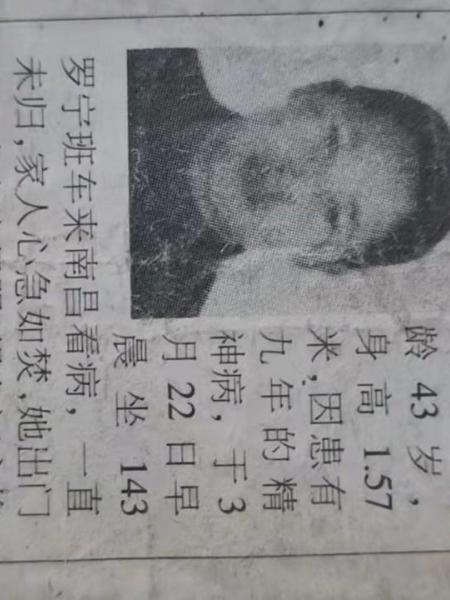 龄 43 岁，
身高 1.57
米，因患有
九年的精
神病，于 3
月 22 日早
晨坐 143
罗宁班车来南昌看病，一直
未归，家人心急如焚，她出门